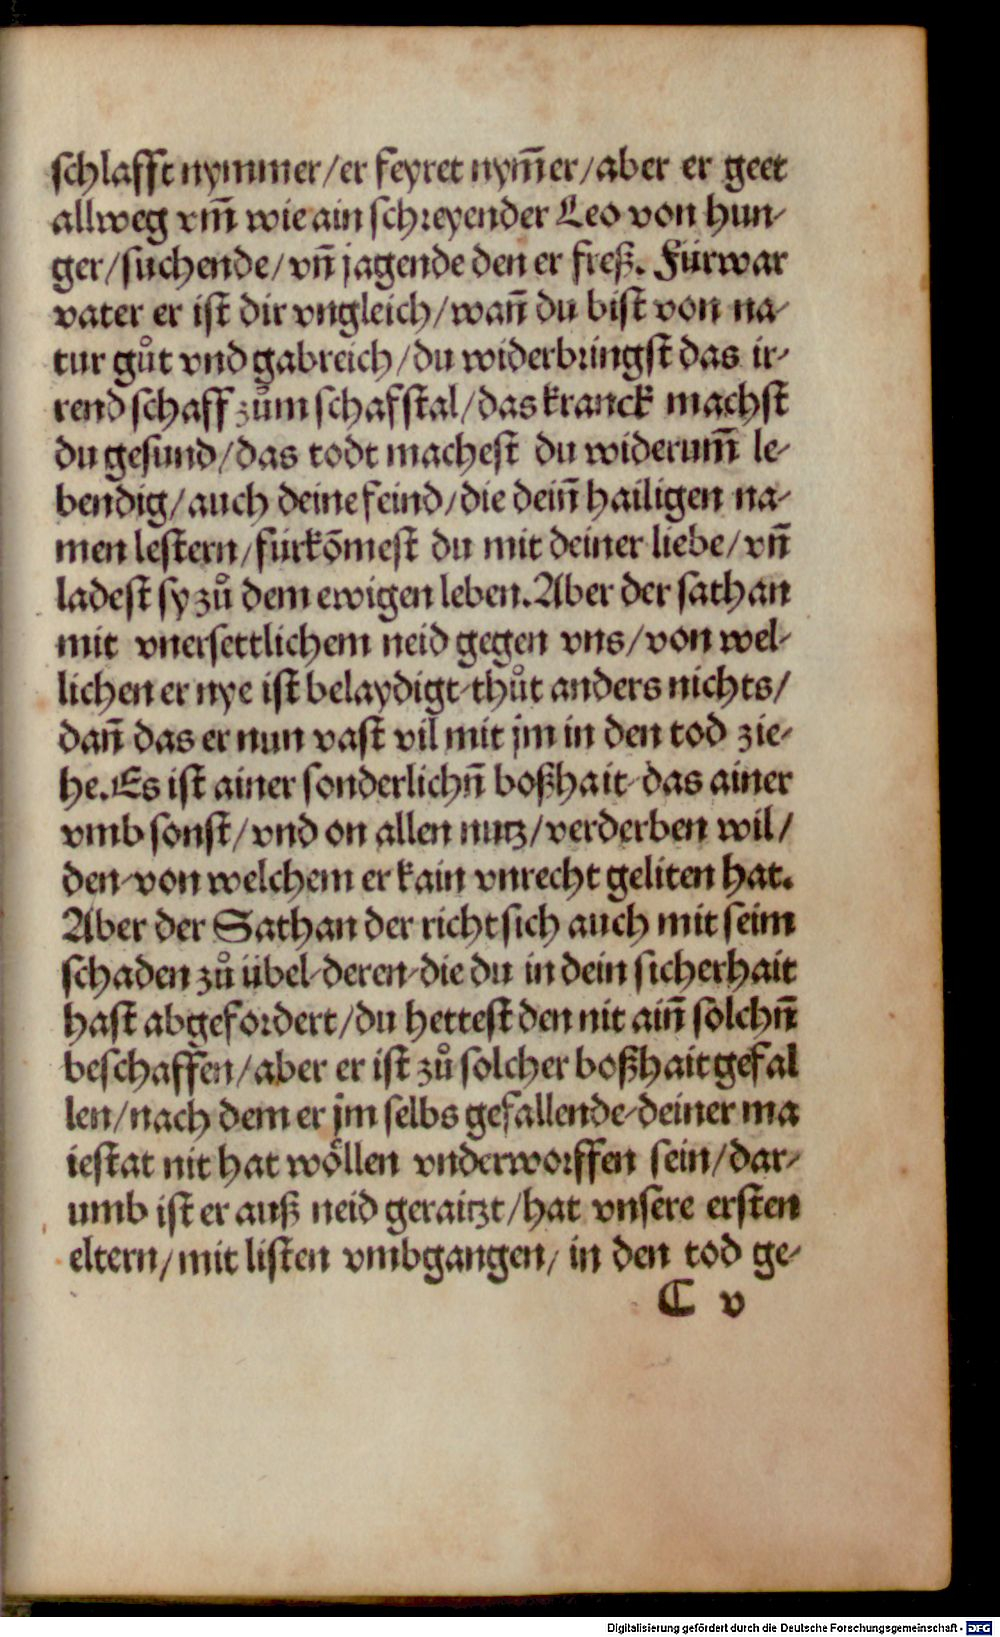 schlafft nymmer/er feyret nym̃er/aber er geet
allweg vm̃ wie ain schreyender Leo von hun-
ger/suchende/vñ jagende den er freß. Fürwar
vater er ist dir vngleich/wañ du bist von na-
tur gůt vnd gabreich/du widerbringst das ir-
rend schaff zům schafstal/das kranck machst
du gesund/das todt machest du widerum̃ le-
bendig/auch deine feind/die deiñ hailigen na-
men lestern/fürkõmest du mit deiner liebe/vñ
ladest sy zů dem ewigen leben. Aber der sathan
mit vnersettlichem neid gegen vns/von wel-
lichen er nye ist belaydigt-thůt anders nichts/
dañ das er nun vast vil mit jm in den tod zie-
he. Es ist ainer sonderlichñ boßhait-das ainer
vmb sonst/vnd on allen nutz/verderben wil/
den-von welchem er kain vnrecht geliten hat.
Aber der Sathan der richt sich auch mit seim
schaden zů übel-deren-die du in dein sicherhait
hast abgefordert/du hettest den nit aiñ solchñ
beschaffen/aber er ist zů solcher boßhait gefal
len/nach dem er jm selbs gefallende-deiner ma
iestat nit hat wöllen vnderworffen sein/dar-
umb ist er auß neid geraitzt/hat vnsere ersten
eltern/mit listen vmbgangen/in den tod ge-
C v
Digitalisierung gefördert durch die Deutsche Forschungsgemeinschaft - DFG